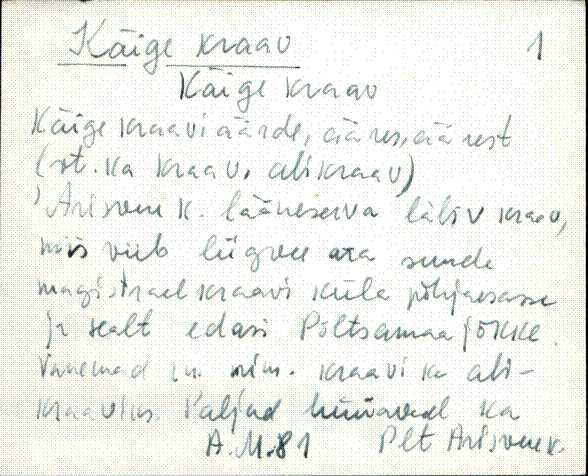 Käige kraav 1
Käige kraav
Käige kraavi äärde, ääres, äärest
(st. ka kraav, alikraav)
Arisvere k. lääneserva läbiv kraav,
mis viib liigvee ära suurde
magistraalkraavi küla põhjaosasse
ja sealt edasi Põltsamaa jõkke.
Vanemad in. nim. kraavi ka ali-
kraaviks. Paljud hüüavad ka
A.M.81 Plt Arisvere k.